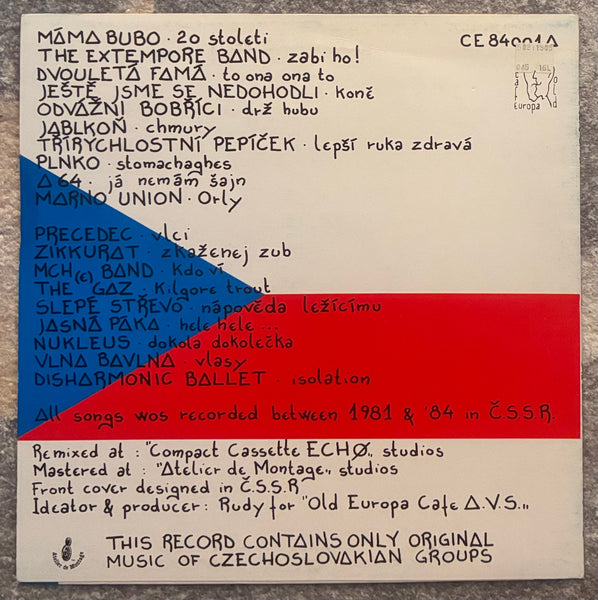 MÁMA BUBO · 20 století
CE 84001A
THE EXTEMPORE BAND · zabi ho!
DVOULETÁ FAMÁ · to ona ona to
JEŠTĚ JSME SE NEDOHODLI · koně
ODVÁŽNI BOBŘÍCI · drž hubu
JABLKOŇ · chmury
TŘÍRYCHLOSTNÍ PEPÍČEK · lepší ruka zdravá
PLNKO · stomachaghes
A 64 · já nemám šajn
MARNO UNION · Orly
Europa
PRECEDEC · vlci
ZIKKURAT · zkaženej zub
MCH(E) BAND · Kdo ví
THE GAZ · Kilgore trout
SLEPÉ STŘEVO · nápověda ležícímu
JASNÁ PÁKA · hele hele ...
NUKLEUS · dokola dokolečka
VLNA BAVLNA · vlasy
DISHARMONIC BALLET · isolation
All songs wos recorded between 1981 & '84 in Č.S.S.R.
Remixed at : "Compact Cassette ECHØ„ studios
Mastered at : "Atelier de Montage„ studios
Front cover designed in Č.S.S.R
Ideator & producer : Rudy for "Old Europa Cafe A.V.S.„
THIS RECORD CONTAINS ONLY ORIGINAL
MUSIC OF CZECHOSLOVAKIAN GROUPS
Atelier de Montage